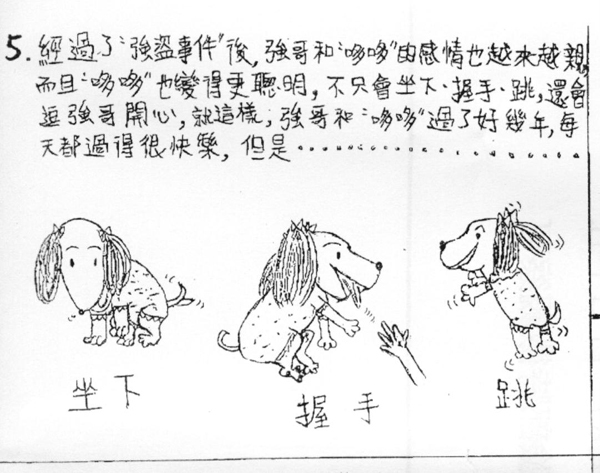 5. 經過了"強盜事件"後,強哥和"哆哆"由感情也越來越親,
而且"哆哆"也變得更聰明,不只會坐下、握手、跳,還會
逗強哥開心,就這樣;強哥和"哆哆"過了好幾年,每
天都過得很快樂,但是....................
坐下
握手
跳